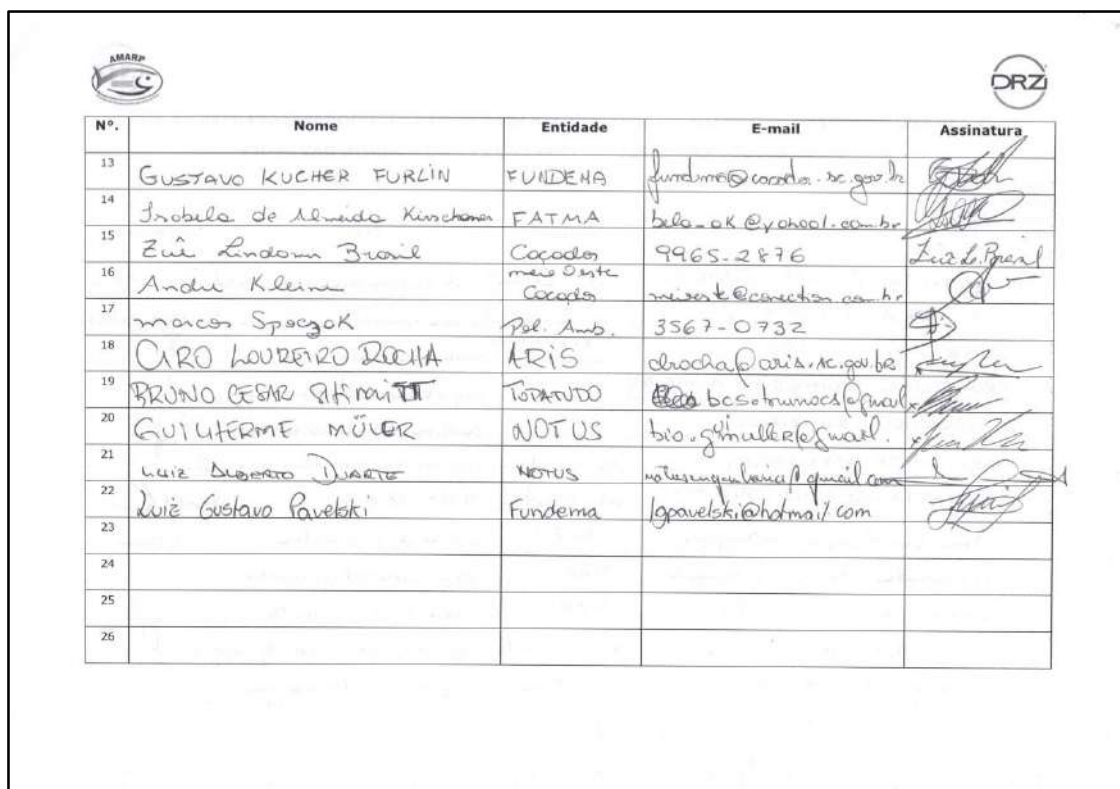 AMARP
DRZ
Nº. Nome Entidade E-mail Assinatura
13 GUSTAVO KUCHER FURLIN FUNDEMA
14 Isabela de Almeida FATMA bela_ok@yahool.com.br
15 Zuê Lindomr Brasil Caçador 9965-2876 Luiz L. Brasil
16 Andre Kleine meio Oeste Caçador
17 marcos Spaczok Pol. Amb. 3567-0732
18 CIRO LOUREIRO ROCHA ARIS clrocha@aris.sc.gov.br
19 BRUNO CESAR TOPATUDO
20 GUILHERME MÜLER NOTUS bio.gmuller@gmail.
21 LUIZ ALBERTO DUARTE NOTUS notusengenharia@gmail.com
22 Luiz Gustavo Pavelski Fundema lgpavelski@hotmail.com
23
24
25
26